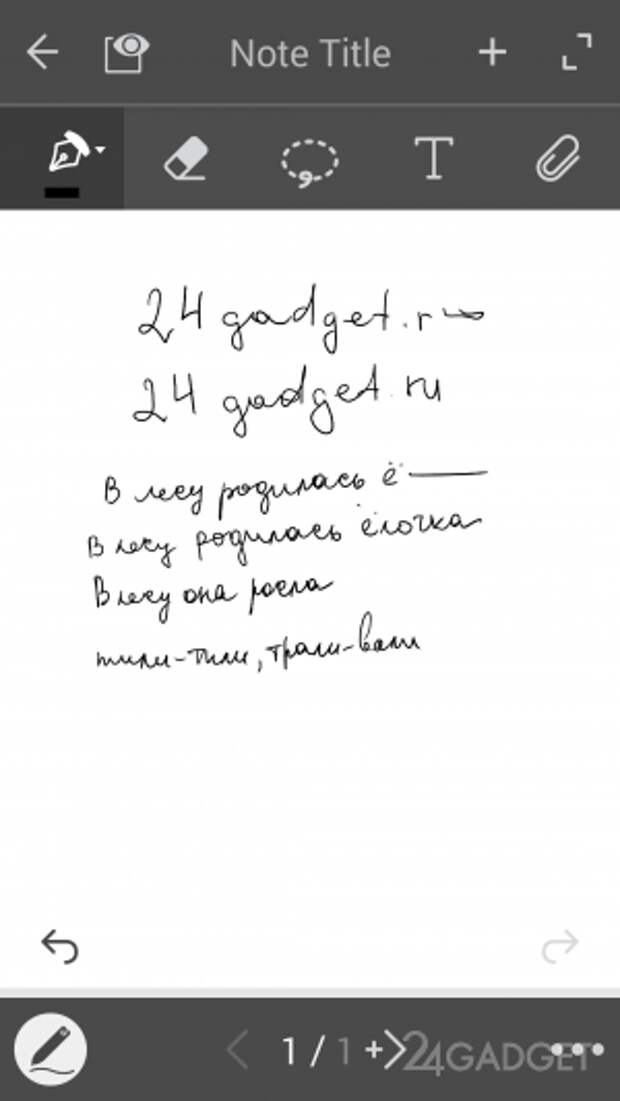 Note Title
T
24 gadget.r
24 gadget.ru
В лесу родилась ё
В лесу родилась ёлочка
В лесу она росла
тили-тили, трали-вали
1 / 1 +
24GADGET